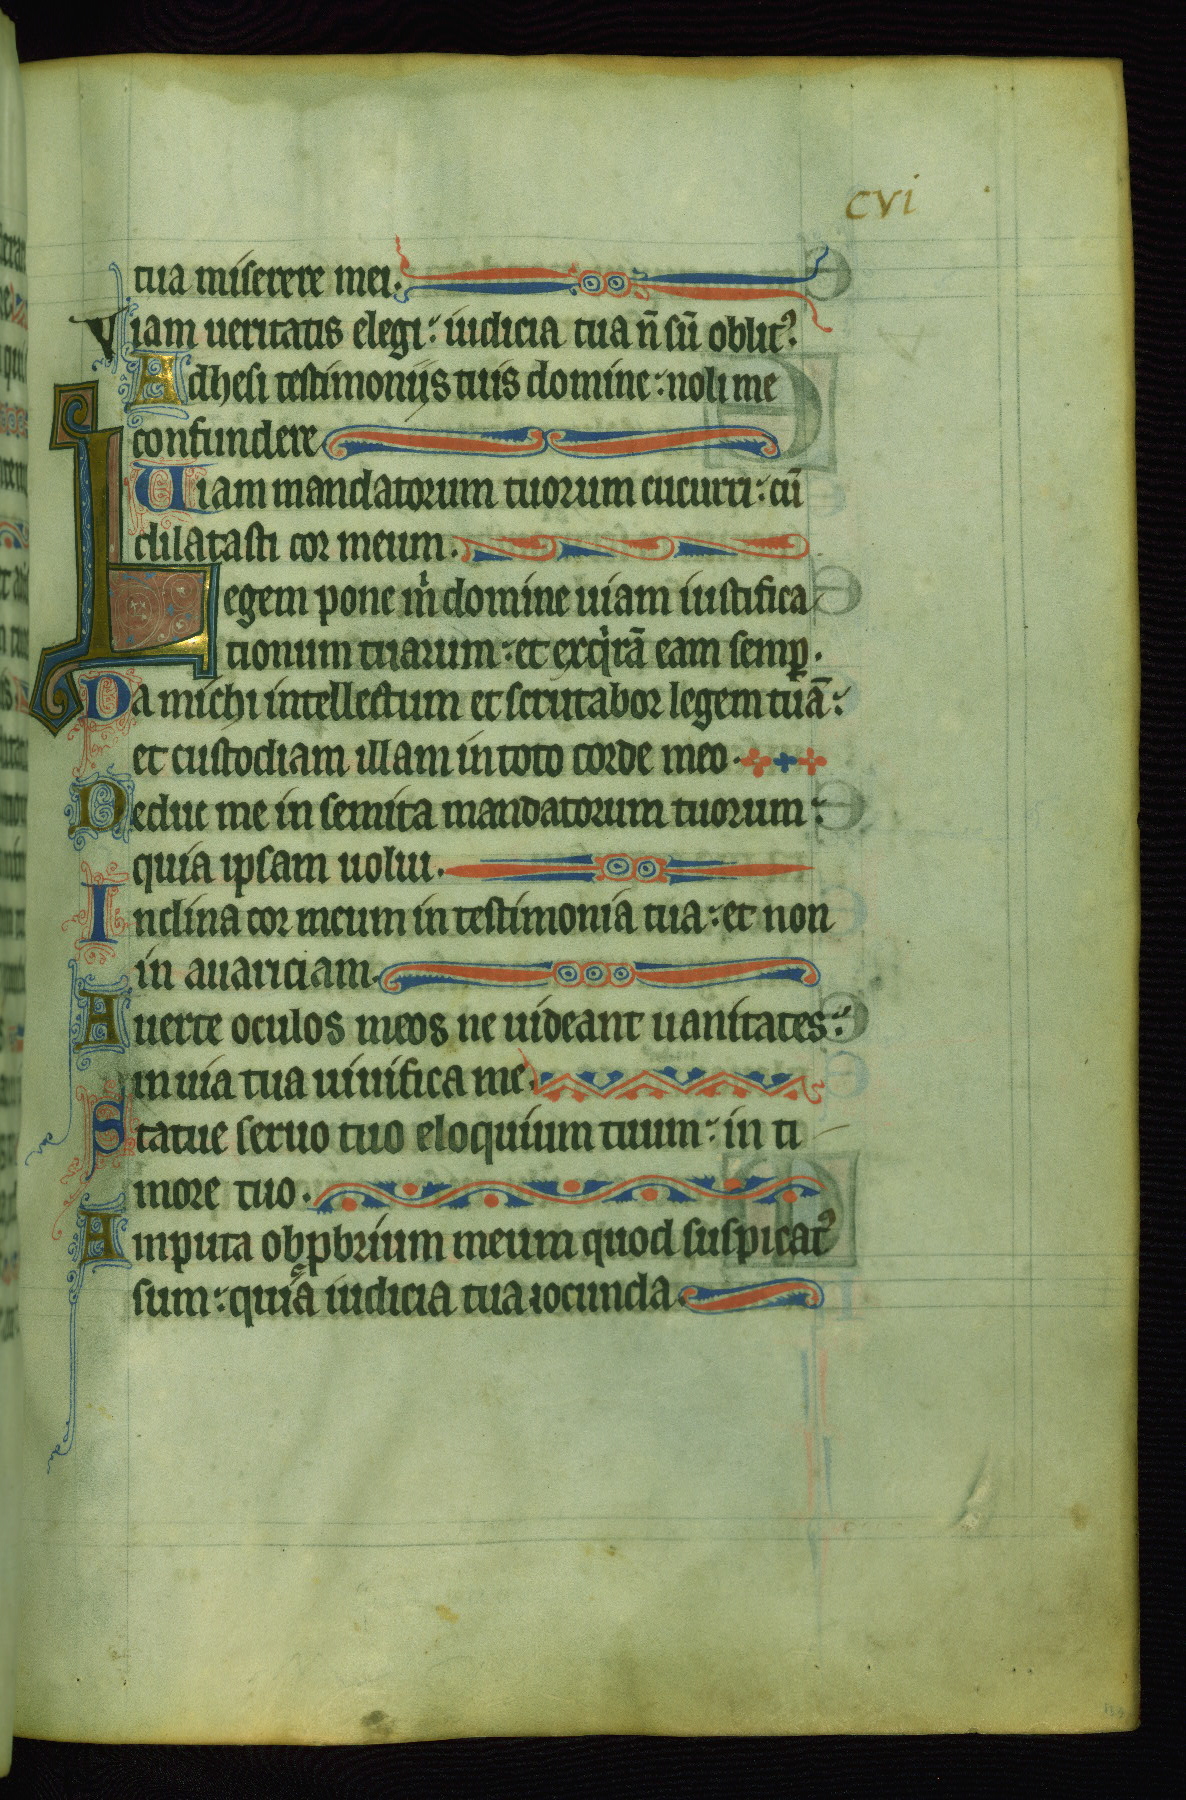 cvi
tua miserere mei.
Viam ueritatis elegi: iudicia tua n̄ sū oblit᷒.
Adhesi testimoniis tuis domine: noli me
confundere
Uiam mandatorum tuorum cucurri: cū
dilatasti cor meum.
Legem pone m̍ domine uiam iustifica
tionum tuarum: et exq̍rā eam semꝑ.
Da michi intellectum et scrutabor legem tuā:
et custodiam illam in toto corde meo.
Deduc me in semita mandatorum tuorum:
quia ipsam uolui.
Inclina cor meum in testimonia tua: et non
in auariciam.
Auerte oculos meos ne uideant uanitates:
in uia tua uiuifica me.
Statue seruo tuo eloquium tuum: in ti
more tuo.
Amputa obꝓbrium meum quod suspicat᷒
sum: quia iudicia tua iocunda.